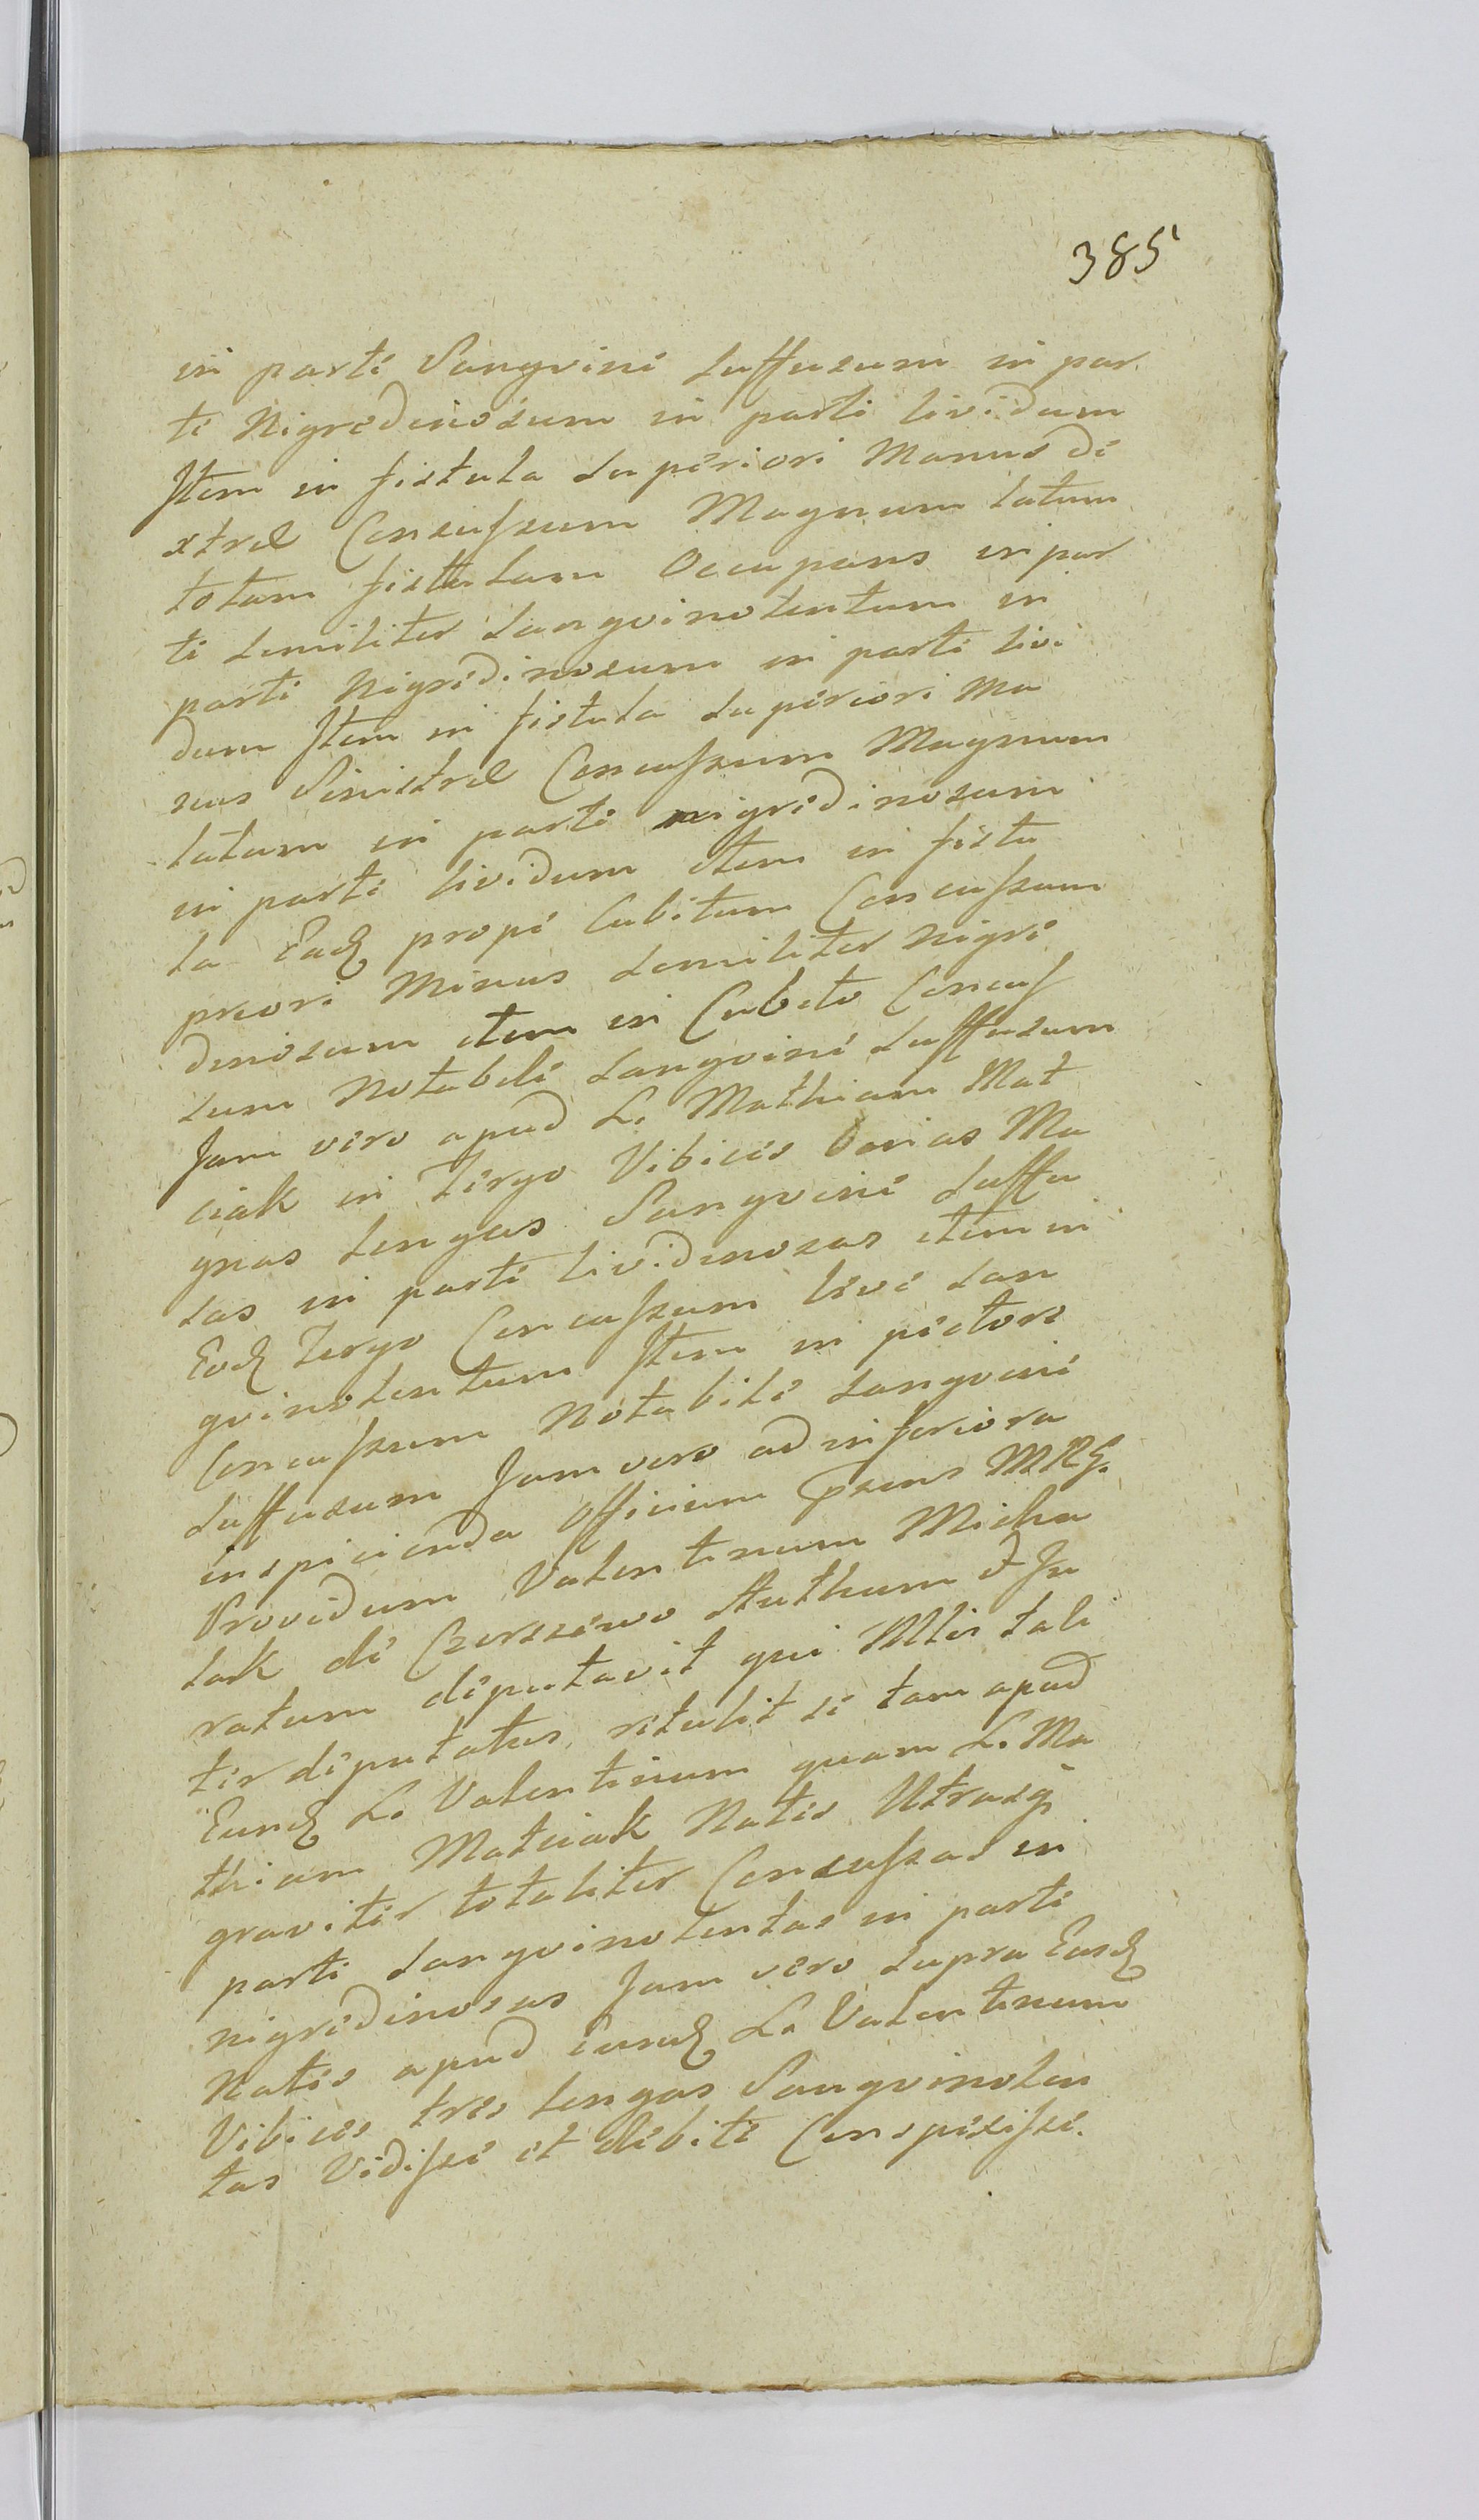 385
in parte Sangvine suffusum in par
te Nigredinosum in parte lividum
Item in fistula superiori Manus de
xtrae Concussum Magnum latum
totam fistulam Occupans in par
te similiter sangvinolentum in
parte Nigredinosum in parte livi
dum Item in fistula superiori Ma
nus Sinistrae Concussum Magnum
latum in parte nigredinosum
in parte lividum item in fistu
la Eadq prope Cubitum Concussum
priori Minus similiter nigre
dinosum item in Cubito Concus
sum Notabile sangvine suffusum
Jam vero apud L. Mathiam Mat
ciak in Tergo Vibices Varias Ma
gnas longas Sangvine suffu
sas in parte lividinosas item in
Eodq Tergo Concussum leve san
gvinolentum Item in pectore
Concussum Notabile sangvine
suffusum Jam vero ad inferiora
inspicienda Officium psens MRG.
Providum Valentinum Micha
lak de Czerszewo Authum & Ju
ratum deputavit qui Mler tali
ter deputatus retulit se tam apud
Eundq L. Valentinum quam L. Ma
thiam Matciak Nates Utrasq
graviter totaliter Concussas in
parte sangvinolentas in parte
nigredinosas Jam vero supra Easdq
Nates apud eundq L. Valentinum
Vibices tres longas Sangvinolen
tas Vidisse et debite Conspexisse.